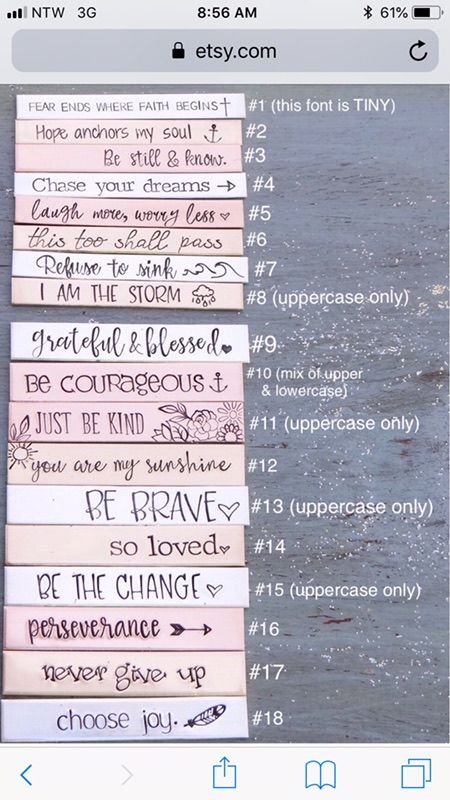 NTW 3G 8:56 AM 61%
etsy.com
FEAR ENDS WHERE FAITH BEGINS #1 (this font is TINY)
Hope anchors my soul #2
Be still & know. #3
Chase your dreams #4
laugh more, worry less #5
this too shall pass #6
Refuse to sink #7
I AM THE STORM #8 (uppercase only)
grateful & blessed #9
Be courageous #10 (mix of upper
& lowercase)
JUST BE KIND #11 (uppercase only)
you are my sunshine #12
BE BRAVE #13 (uppercase only)
so loved #14
BE THE CHANGE #15 (uppercase only)
perseverance #16
never give up #17
choose joy. #18